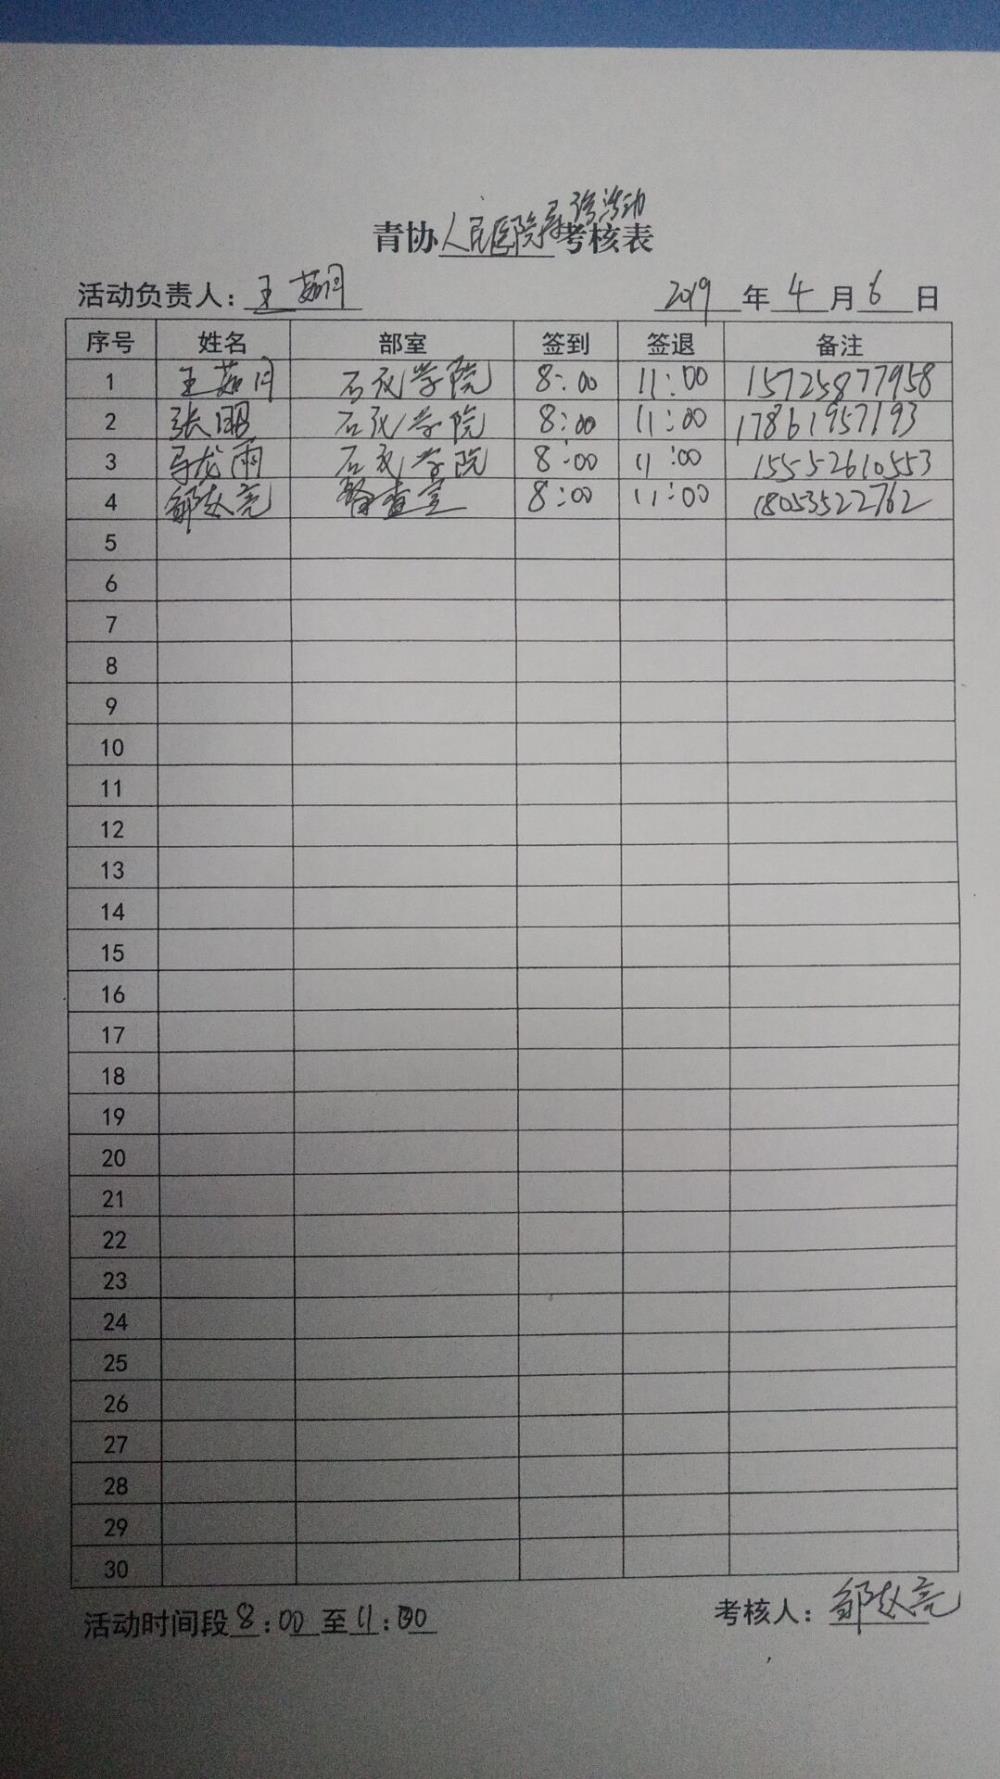 青协人民医院导诊活动考核表
活动负责人：王茹月 2019年4月6日
序号 姓名 部室 签到 签退 备注
1 王茹月 石武学院 8:00 11:00 15725877958
2 张鹏 石武学院 8:00 11:00 17861957193
3 马龙雨 石武学院 8:00 11:00 15552610553
4 邹赵亮 督查室 8:00 11:00 18053522762
5
6
7
8
9
10
11
12
13
14
15
16
17
18
19
20
21
22
23
24
25
26
27
28
29
30
活动时间段8:00至11:00 考核人：邹赵亮